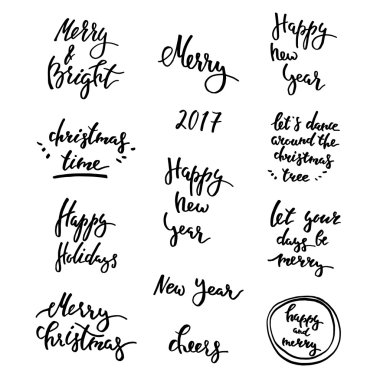 Merry
&
Bright
Merry
Happy
new
Year
christmas
time
2017
let's dance
around the
christmas
tree
Happy
Holidays
Happy
New
Year
let your
days be
merry
Merry
christmas
New Year
cheers
happy
and
merry